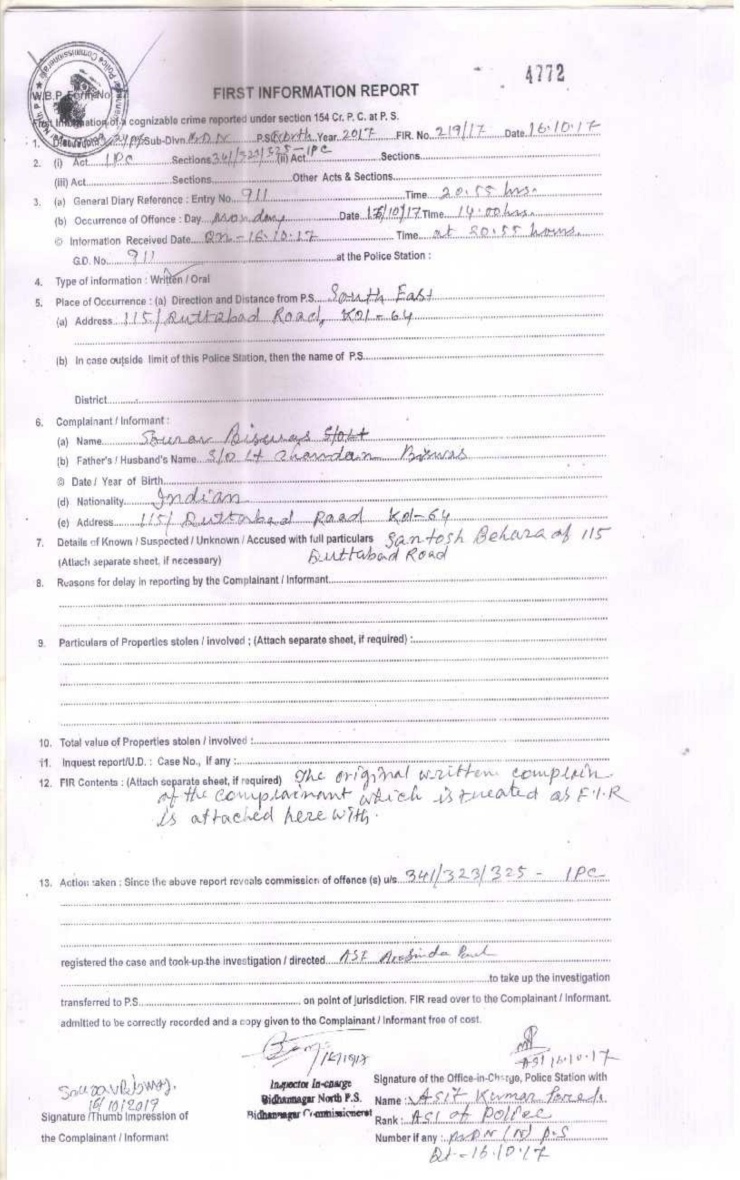 4772
FIRST INFORMATION REPORT
W.B.P. Form No
First Information of a cognizable crime reported under section 154 Cr. P. C. at P. S.
1. Sub-Divn. BDN P.S. North Year 2017 FIR. No. 219/17 Date 16.10.17
2. (i) Act IPC Sections 341/323/325-IPC (ii) Act Sections
(iii) Act Sections Other Acts & Sections
3. (a) General Diary Reference : Entry No. 911 Time 20.55 hrs.
(b) Occurrence of Offence : Day Monday Date 16/10/17 Time 14.00 hrs.
© Information Received Date On - 16.10.17 Time at 20.55 hours.
G.D. No. 911 at the Police Station :
4. Type of information : Written / Oral
5. Place of Occurrence : (a) Direction and Distance from P.S. South East
(a) Address 115/ Duttabad Road, Kol-64
(b) In case outside limit of this Police Station, then the name of P.S.
District
6. Complainant / Informant :
(a) Name Sourav Biswas S/O Lt
(b) Father's / Husband's Name S/O Lt Chandan Biswas
© Date / Year of Birth
(d) Nationality Indian
(e) Address 115/ Duttabad Road Kol-64
7. Details of Known / Suspected / Unknown / Accused with full particulars Santosh Behara of 115
(Attach separate sheet, if necessary) Duttabad Road
8. Reasons for delay in reporting by the Complainant / Informant
9. Particulars of Properties stolen / involved ; (Attach separate sheet, if required) :
10. Total value of Properties stolen / involved :
11. Inquest report/U.D. : Case No., if any :
12. FIR Contents : (Attach separate sheet, if required) The original written complain
of the complainant which is treated as F.I.R
is attached here with.
13. Action taken : Since the above report reveals commission of offence (s) u/s 341/323/325 - IPC
registered the case and took-up the investigation / directed ASI Arabinda Paul
to take up the investigation
transferred to P.S. on point of jurisdiction. FIR read over to the Complainant / Informant.
admitted to be correctly recorded and a copy given to the Complainant / Informant free of cost.
ASI 16.10.17
Inspector In-charge
Bidhannagar North P.S.
Bidhannagar Commissionerate
Signature of the Office-in-Charge, Police Station with
Name : ASIT Kumar
Rank : ASI of Police
Number if any : BDN (N) P.S
Dt - 16.10.17
Sourav Biswas.
16/10/2017
Signature /Thumb Impression of
the Complainant / Informant